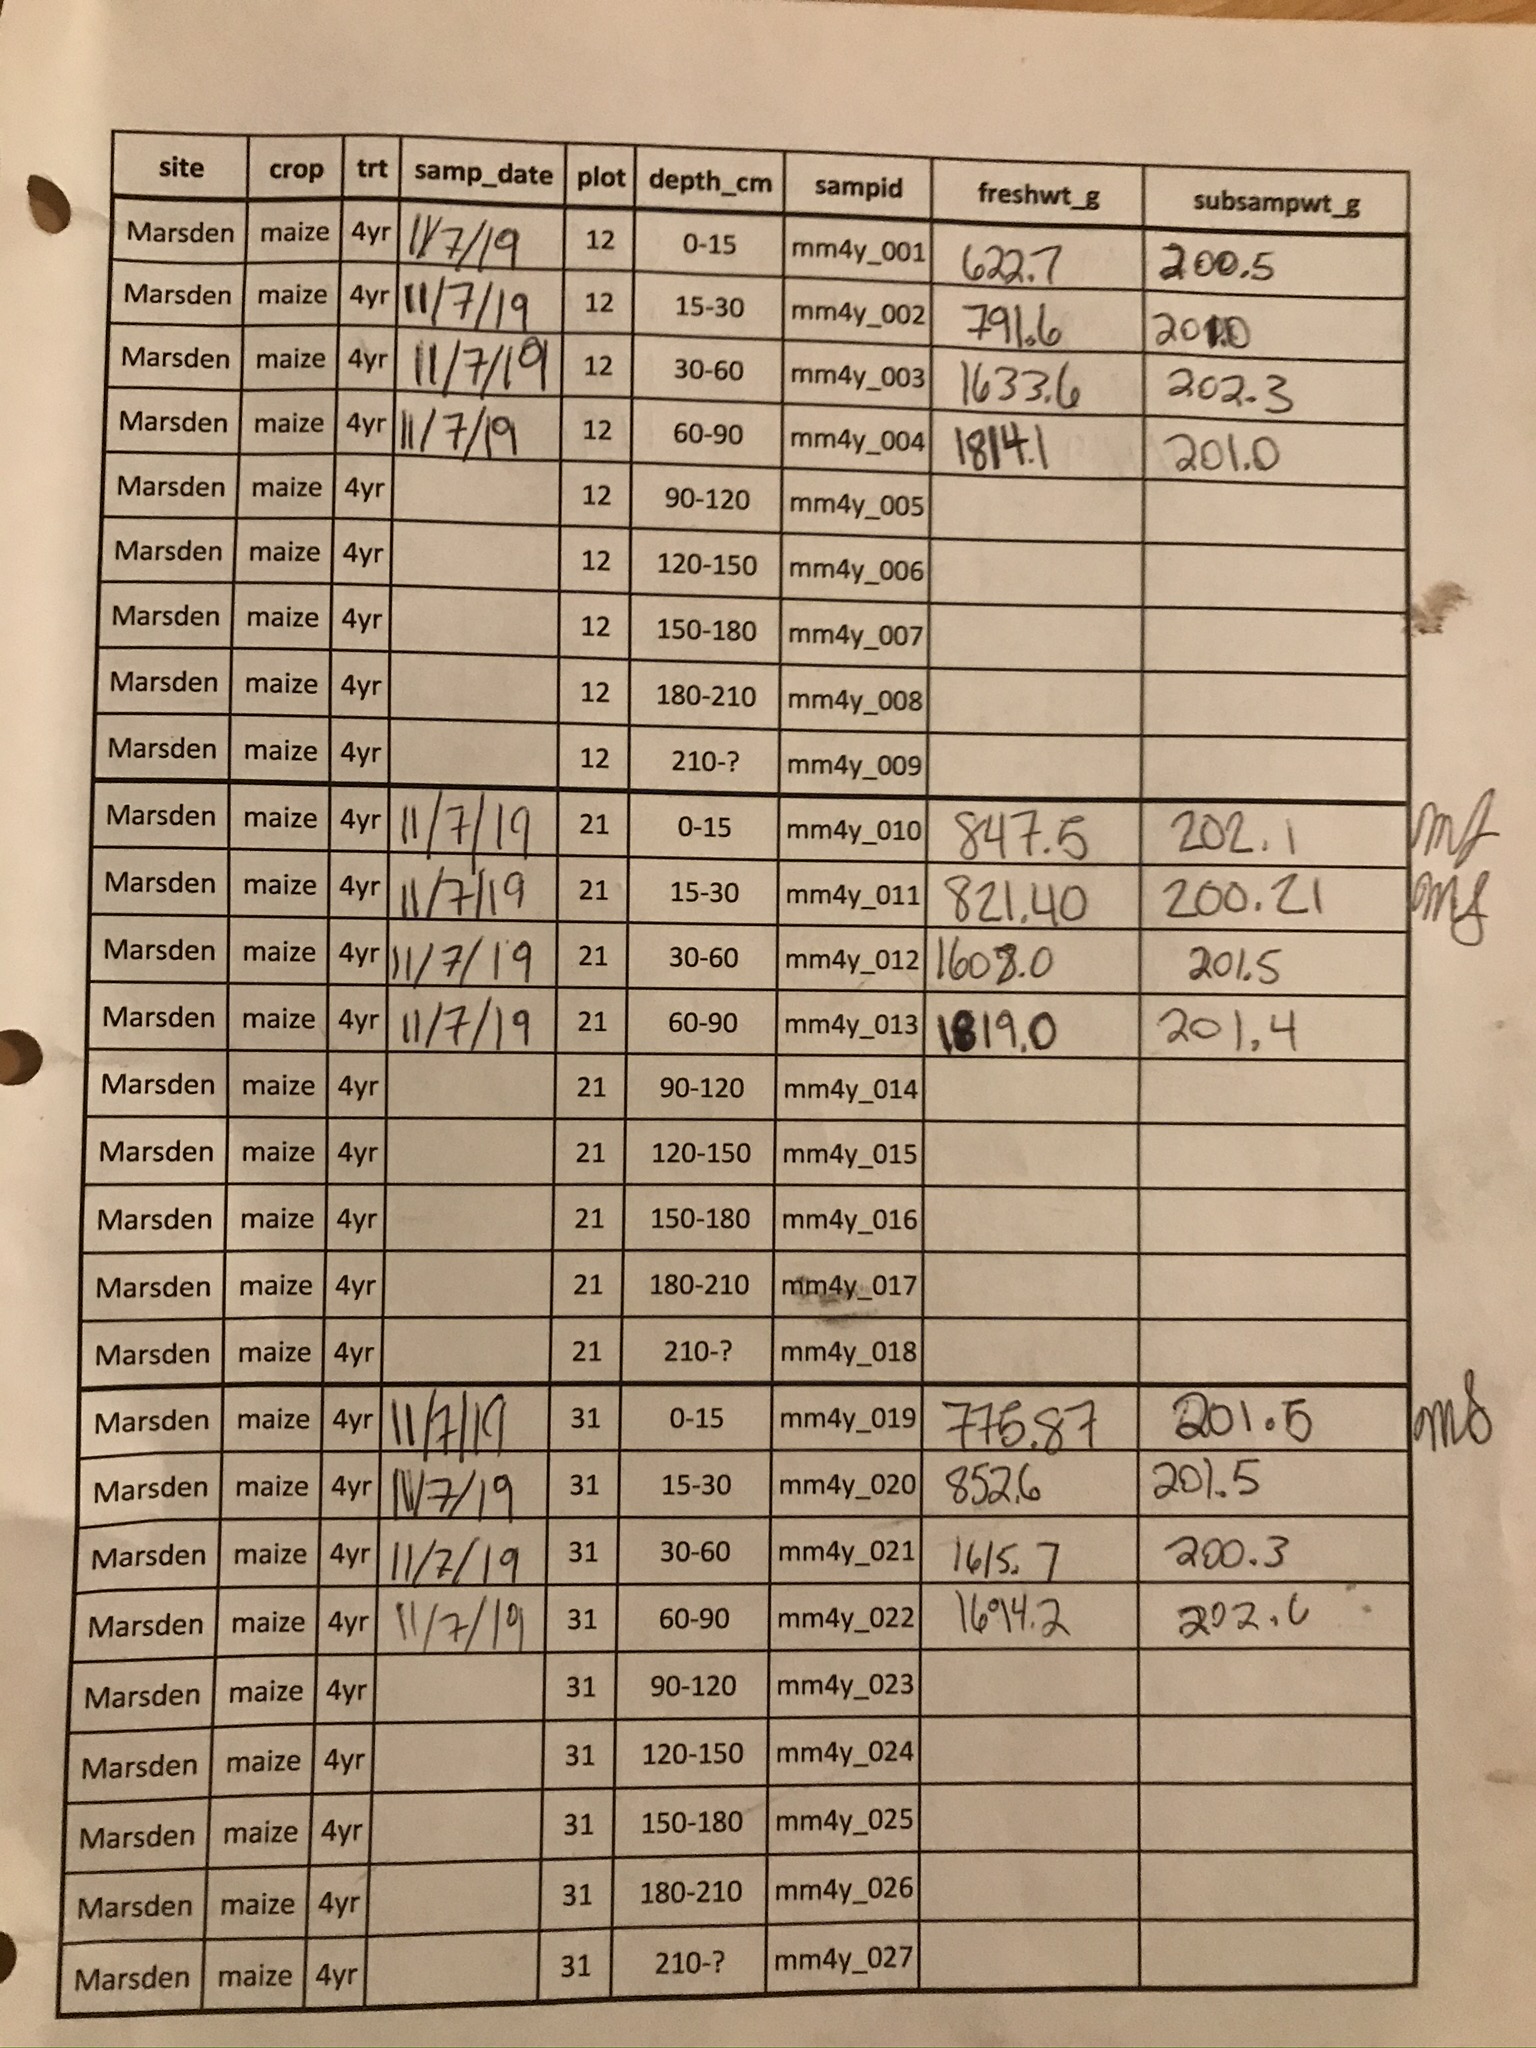 site crop trt samp_date plot depth_cm sampid freshwt_g subsampwt_g
Marsden maize 4yr 11/7/19 12 0-15 mm4y_001 622.7 200.5
Marsden maize 4yr 11/7/19 12 15-30 mm4y_002 791.6 201.0
Marsden maize 4yr 11/7/19 12 30-60 mm4y_003 1633.6 202.3
Marsden maize 4yr 11/7/19 12 60-90 mm4y_004 1814.1 201.0
Marsden maize 4yr 12 90-120 mm4y_005
Marsden maize 4yr 12 120-150 mm4y_006
Marsden maize 4yr 12 150-180 mm4y_007
Marsden maize 4yr 12 180-210 mm4y_008
Marsden maize 4yr 12 210-? mm4y_009
Marsden maize 4yr 11/7/19 21 0-15 mm4y_010 847.5 202.1
Marsden maize 4yr 11/7/19 21 15-30 mm4y_011 821.40 200.21
Marsden maize 4yr 11/7/19 21 30-60 mm4y_012 1608.0 201.5
Marsden maize 4yr 11/7/19 21 60-90 mm4y_013 1819.0 201.4
Marsden maize 4yr 21 90-120 mm4y_014
Marsden maize 4yr 21 120-150 mm4y_015
Marsden maize 4yr 21 150-180 mm4y_016
Marsden maize 4yr 21 180-210 mm4y_017
Marsden maize 4yr 21 210-? mm4y_018
Marsden maize 4yr 11/7/19 31 0-15 mm4y_019 775.87 201.5
Marsden maize 4yr 11/7/19 31 15-30 mm4y_020 852.6 201.5
Marsden maize 4yr 11/7/19 31 30-60 mm4y_021 1615.7 200.3
Marsden maize 4yr 11/7/19 31 60-90 mm4y_022 1694.2
Marsden maize 4yr 31 90-120 mm4y_023
Marsden maize 4yr 31 120-150 mm4y_024
Marsden maize 4yr 31 150-180 mm4y_025
Marsden maize 4yr 31 180-210 mm4y_026
Marsden maize 4yr 31 210-? mm4y_027